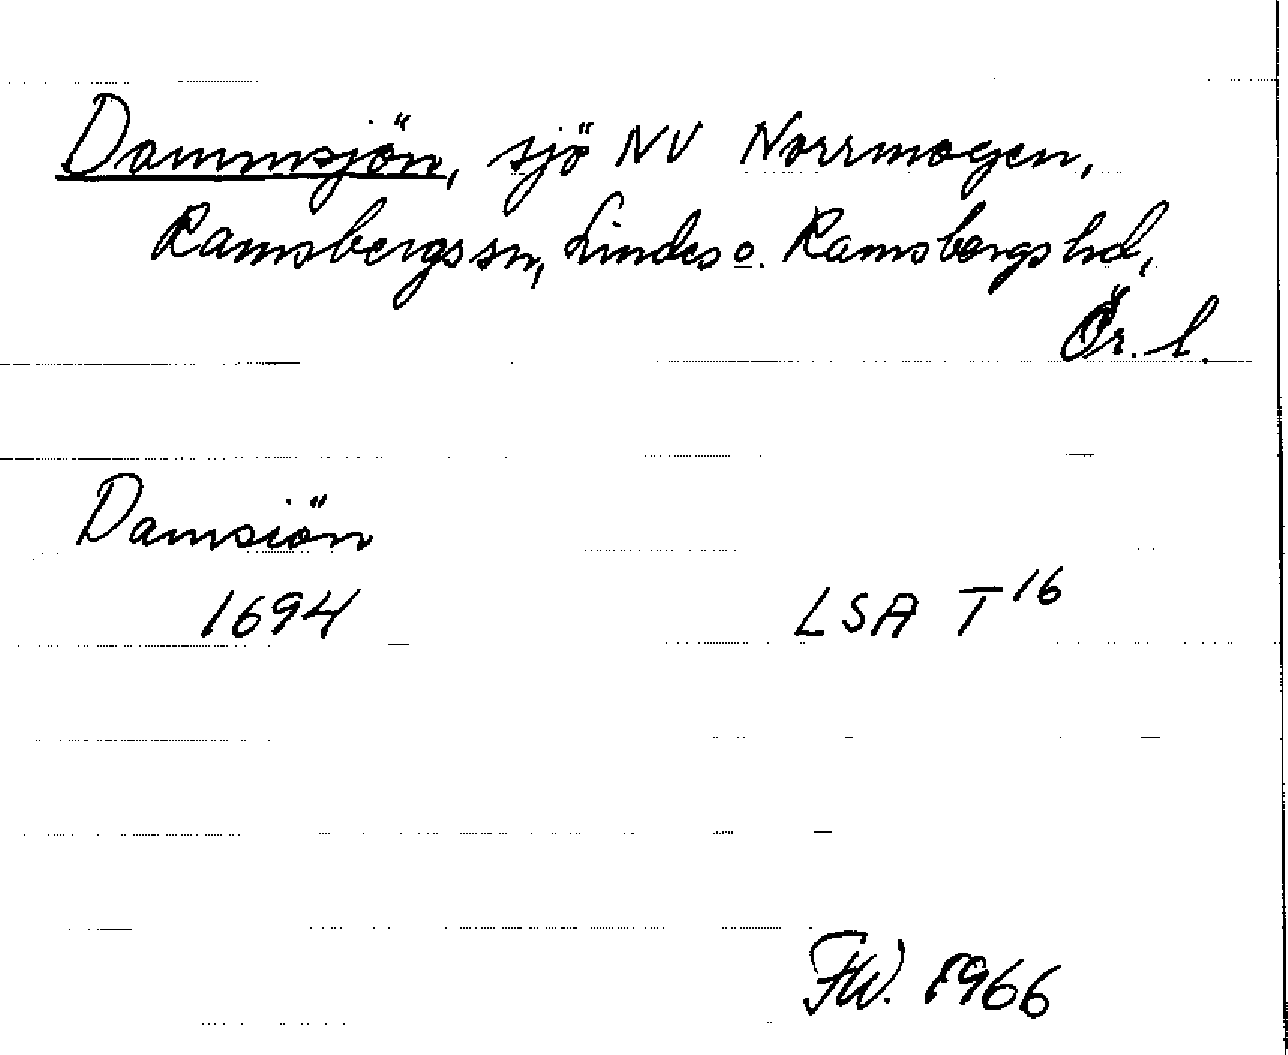 Dammsjön, sjö NV Norrmogen,
Ramsbergs sn, Lindes o. Ramsbergs hd,
Ör. l.
Damsiön
1694 LSA T 16
FW. 1966